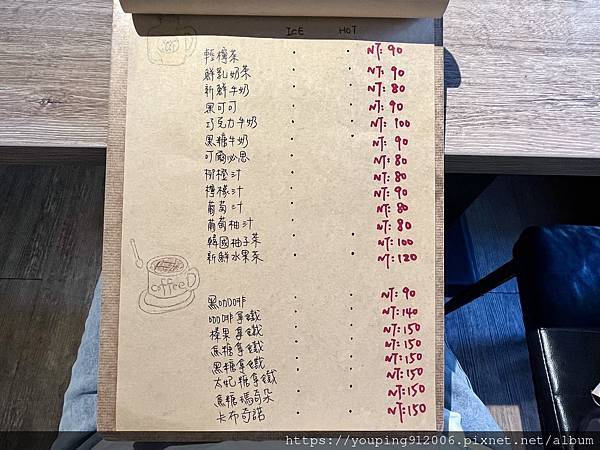 ICE HOT
輕檸茶 · · NT: 90
鮮乳奶茶 · · NT: 90
新鮮牛奶 · · NT: 80
黑可可 · · NT: 90
巧克力牛奶 · · NT: 100
黑糖牛奶 · · NT: 90
可爾必思 · NT: 80
柳橙汁 · NT: 80
檸檬汁 · NT: 90
葡萄汁 · NT: 80
葡萄柚汁 · NT: 80
韓國柚子茶 · NT: 100
新鮮水果茶 · · NT: 120
coffee
黑咖啡 · · NT: 90
咖啡拿鐵 · · NT: 140
榛果拿鐵 · · NT: 150
焦糖拿鐵 · · NT: 150
黑糖拿鐵 · · NT: 150
太妃糖拿鐵 · · NT: 150
焦糖瑪奇朵 · · NT: 150
卡布奇諾 · · NT: 150
https://youping912006.pixnet.net/album